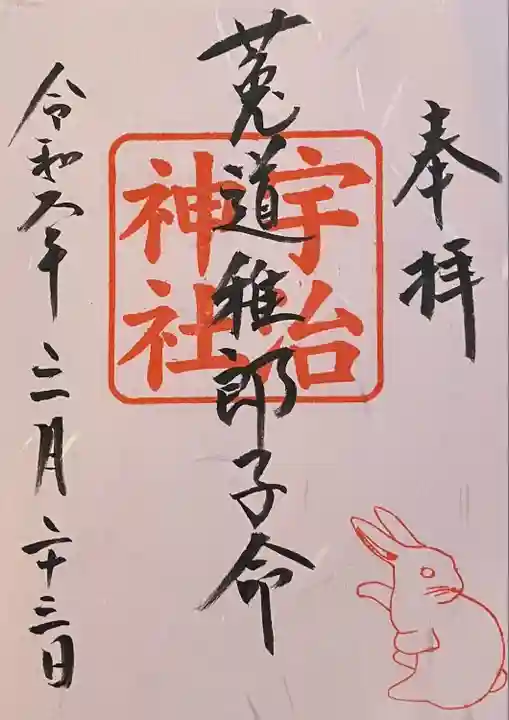 奉拝
菟道稚郎子命
宇治
神社
令和六年三月二十三日